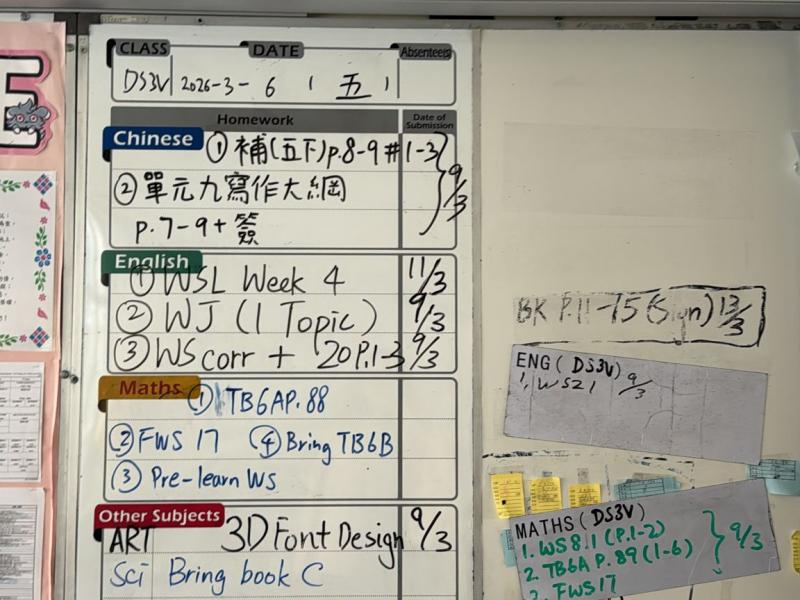 CLASS DATE Absentees
DS3V 2026-3-6 (五)
Homework Date of Submission
Chinese ① 補(五下)p.8-9 #1-3 } 9/3
② 單元九寫作大綱
p.7-9+簽
English
① WSL Week 4 11/3
② WJ (1 Topic) 9/3
③ WS corr + 20P.1-3 9/3
Maths ① TB6AP.88
② FWS 17 ④ Bring TB6B
③ Pre-learn WS
Other Subjects
ART 3D Font Design 9/3
Sci Bring book C
BK P.11-15 (Sign) 13/3
ENG (DS3V)
1. WS21 9/3
MATHS (DS3V)
1. WS 8.1 (P.1-2) } 9/3
2. TB6A P.89 (1-6)
3. FWS17